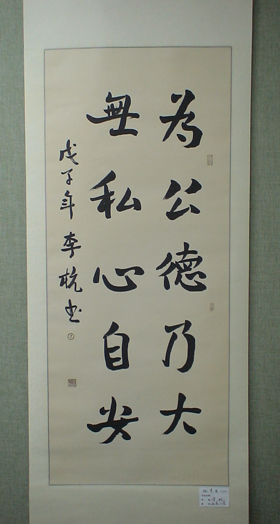 為公德乃大
無私心自安
戊子年 李杭书